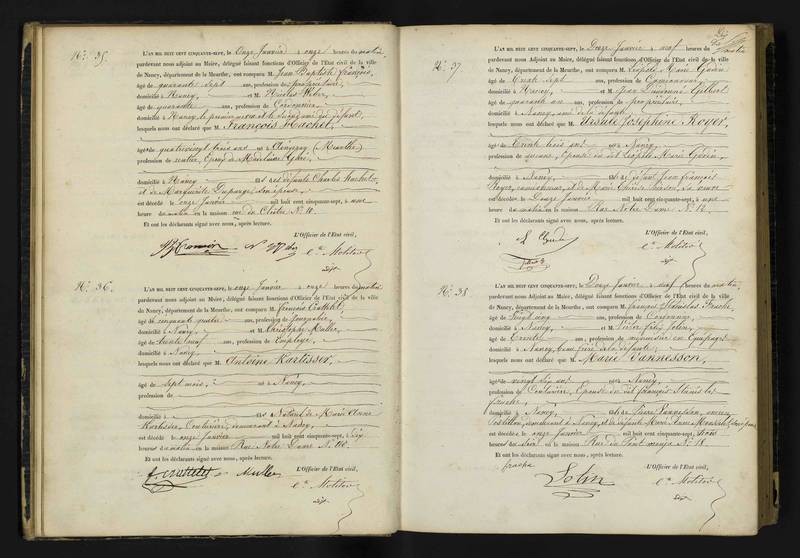 N.º 35.
L'AN MIL HUIT CENT CINQUANTE-SEPT, le Onze Janvier à onze heures du matin
pardevant nous Adjoint au Maire, délégué faisant fonctions d'Officier de l'Etat civil de la ville
de Nancy, département de la Meurthe, ont comparu M. Jean Baptiste François,
âgé de quarante sept ans, profession de propriétaire,
domicilié à Nancy, et M. Nicolas Weber,
âgé de quarante ans, profession de Cordonnier,
domicilié à Nancy, le premier
lesquels nous ont déclaré que M. François Hachel,
âgé de quatrevingt trois ans né à (Meurthe)
profession de rentier, Epoux de Madelaine
domicilié à Nancy né de défunts Charles Hachel,
et de Marguerite son épouse,
est décédé le onze Janvier mil huit cent cinquante-sept, à une
heure du matin en la maison rue du Cloître N.º 10.
Et ont les déclarants signé avec nous, après lecture.
L'Officier de l'Etat civil,
Molitor
N.º 36.
L'AN MIL HUIT CENT CINQUANTE-SEPT, le onze Janvier à onze heures du matin
pardevant nous Adjoint au Maire, délégué faisant fonctions d'Officier de l'Etat civil de la ville
de Nancy, département de la Meurthe, ont comparu M. François
âgé de cinquante quatre ans, profession de Journalier,
domicilié à Nancy, et M. Christophe Muller,
âgé de trente neuf ans, profession de Employé,
domicilié à Nancy,
lesquels nous ont déclaré que M. Antoine Kartisser,
âgé de Sept mois, né à Nancy,
profession de
domicilié à né Naturel de Marie Anne
Kartisser, Couturière, demeurant à Nancy,
est décédé le onze Janvier mil huit cent cinquante-sept, à Six
heures du matin en la maison Rue Notre Dame N.º 110.
Et ont les déclarants signé avec nous, après lecture.
L'Officier de l'Etat civil,
Muller
Molitor
N.º 37.
L'AN MIL HUIT CENT CINQUANTE-SEPT, le Douze Janvier à neuf heures du matin
pardevant nous Adjoint au Maire, délégué faisant fonctions d'Officier de l'Etat civil de la ville
de Nancy, département de la Meurthe, ont comparu M. Léopold Marie Godin
âgé de Trente Sept ans, profession de
domicilié à Nancy, et M. Jean Dieudonné Gilbert
âgé de quarante un ans, profession de propriétaire,
domicilié à Nancy, ami de la défunte,
lesquels nous ont déclaré que M. Ursule Joséphine Royer,
âgé de Trente trois ans né à Nancy,
profession de aucune, Epouse du dit Léopold Marie Godin,
domicilié à Nancy, né de défunt Jean François
Royer, et de Marie Thérèse sa veuve
est décédé le Douze Janvier mil huit cent cinquante-sept, à une
heure du matin en la maison Rue Notre Dame N.º 12.
Et ont les déclarants signé avec nous, après lecture.
L'Officier de l'Etat civil,
Molitor
N.º 38.
L'AN MIL HUIT CENT CINQUANTE-SEPT, le Douze Janvier à neuf heures du matin,
pardevant nous Adjoint au Maire, délégué faisant fonctions d'Officier de l'Etat civil de la ville
de Nancy, département de la Meurthe, ont comparu M. François Stanislas
âgé de Vingt cinq ans, profession de Cordonnier,
domicilié à Nancy, et M.
âgé de Trente ans, profession de
domicilié à Nancy, de la défunte,
lesquels nous ont déclaré que M. Marie Vannesson,
âgé de vingt Six ans né à Nancy,
profession de Couturière, Epouse du dit François Stanislas
domicilié à Nancy, né de Pierre Vannesson, ancien
Postillon, demeurant à Nancy, et de défunte Marie Anne
est décédé le onze Janvier mil huit cent cinquante-sept, à trois
heures du Soir en la maison Rue du Pont mouja N.º 18.
Et ont les déclarants signé avec nous, après lecture.
L'Officier de l'Etat civil,
Molitor